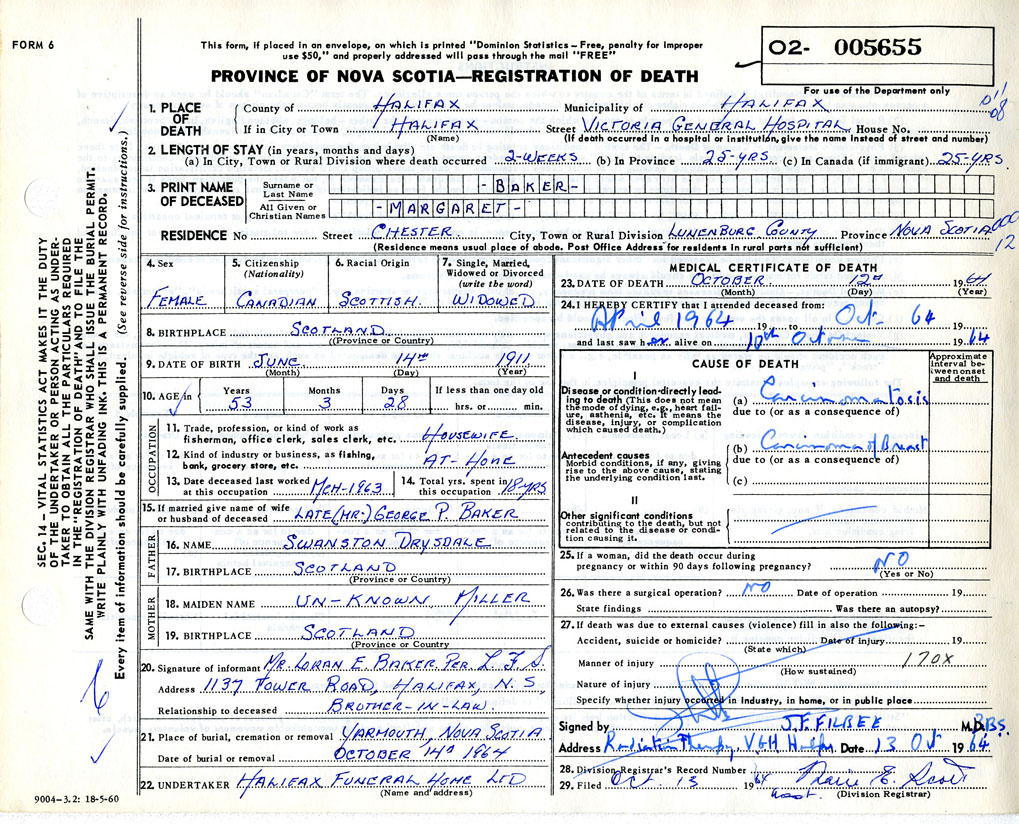 FORM 6
This form, if placed in an envelope, on which is printed "Dominion Statistics – Free, penalty for improper
use $50," and properly addressed will pass through the mail "FREE"
PROVINCE OF NOVA SCOTIA—REGISTRATION OF DEATH
O2- 005655
For use of the Department only
1. PLACE OF DEATH
County of HALIFAX Municipality of HALIFAX
If in City or Town HALIFAX Street VICTORIA GENERAL HOSPITAL House No.
(Name) (If death occurred in a hospital or institution, give the name instead of street and number)
2. LENGTH OF STAY (in years, months and days)
(a) In City, Town or Rural Division where death occurred 2-WEEKS (b) In Province 25-YRS. (c) In Canada (if immigrant) 25-YRS
3. PRINT NAME OF DECEASED
Surname or Last Name -BAKER-
All Given or Christian Names -MARGARET-
RESIDENCE No Street CHESTER City, Town or Rural Division LUNENBURG COUNTY Province NOVA SCOTIA
(Residence means usual place of abode. Post Office Address for residents in rural parts not sufficient)
12
4. Sex FEMALE
5. Citizenship (Nationality) CANADIAN
6. Racial Origin SCOTTISH
7. Single, Married, Widowed or Divorced (write the word) WIDOWED
8. BIRTHPLACE SCOTLAND
(Province or Country)
9. DATE OF BIRTH JUNE 14TH 1911
(Month) (Day) (Year)
10. AGE in Years 53 Months 3 Days 28 If less than one day old hrs. or min.
OCCUPATION
11. Trade, profession, or kind of work as fisherman, office clerk, sales clerk, etc. HOUSEWIFE
12. Kind of industry or business, as fishing, bank, grocery store, etc. AT-HOME
13. Date deceased last worked at this occupation MCH-1963
14. Total yrs. spent in this occupation 18-YRS
15. If married give name of wife or husband of deceased LATE (MR.) GEORGE P. BAKER
FATHER
16. NAME SWANSTON DRYSDALE
17. BIRTHPLACE SCOTLAND
(Province or Country)
MOTHER
18. MAIDEN NAME UN-KNOWN, MILLER
19. BIRTHPLACE SCOTLAND
(Province or Country)
20. Signature of informant MR LORAN E. BAKER PER L.F.S.
Address 1137 TOWER ROAD, HALIFAX, N.S
Relationship to deceased BROTHER-IN-LAW.
21. Place of burial, cremation or removal YARMOUTH, NOVA SCOTIA
Date of burial or removal OCTOBER 14TH 1964
22. UNDERTAKER HALIFAX FUNERAL HOME LTD
(Name and address)
MEDICAL CERTIFICATE OF DEATH
23. DATE OF DEATH OCTOBER 12TH 1964
(Month) (Day) (Year)
24. I HEREBY CERTIFY that I attended deceased from:
April 1964 19 to Oct 64 19
and last saw her alive on 10th October 1964
CAUSE OF DEATH
Approximate interval between onset and death
I
Disease or condition directly leading to death (This does not mean the mode of dying, e.g., heart failure, asthenia, etc. It means the disease, injury, or complication which caused death.)
(a) Carcinomatosis
due to (or as a consequence of)
Antecedent causes
Morbid conditions, if any, giving rise to the above cause, stating the underlying condition last.
(b) Carcinoma of Breast
due to (or as a consequence of)
(c)
II
Other significant conditions
contributing to the death, but not related to the disease or condition causing it.
25. If a woman, did the death occur during
pregnancy or within 90 days following pregnancy? NO
(Yes or No)
26. Was there a surgical operation? NO Date of operation 19
State findings Was there an autopsy?
27. If death was due to external causes (violence) fill in also the following:–
Accident, suicide or homicide? Date of injury 19
(State which)
Manner of injury 170X
(How sustained)
Nature of injury
Specify whether injury occurred in industry, in home, or in public place
Signed by J.F. FILBEE M.B.B.S.
Address Radiation Therapy, VGH Halifax Date 13 Oct 1964
28. Division Registrar's Record Number
29. Filed Oct. 13 1964 E. Scott
(Division Registrar)
9004–3.2: 18-5-60
SEC. 14 – VITAL STATISTICS ACT MAKES IT THE DUTY
OF THE UNDERTAKER OR PERSON ACTING AS UNDER-
TAKER TO OBTAIN ALL THE PARTICULARS REQUIRED
IN THE "REGISTRATION OF DEATH" AND TO FILE THE
SAME WITH THE DIVISION REGISTRAR WHO SHALL ISSUE THE BURIAL PERMIT.
WRITE PLAINLY WITH UNFADING INK. THIS IS A PERMANENT RECORD.
Every item of information should be carefully supplied. (See reverse side for instructions.)